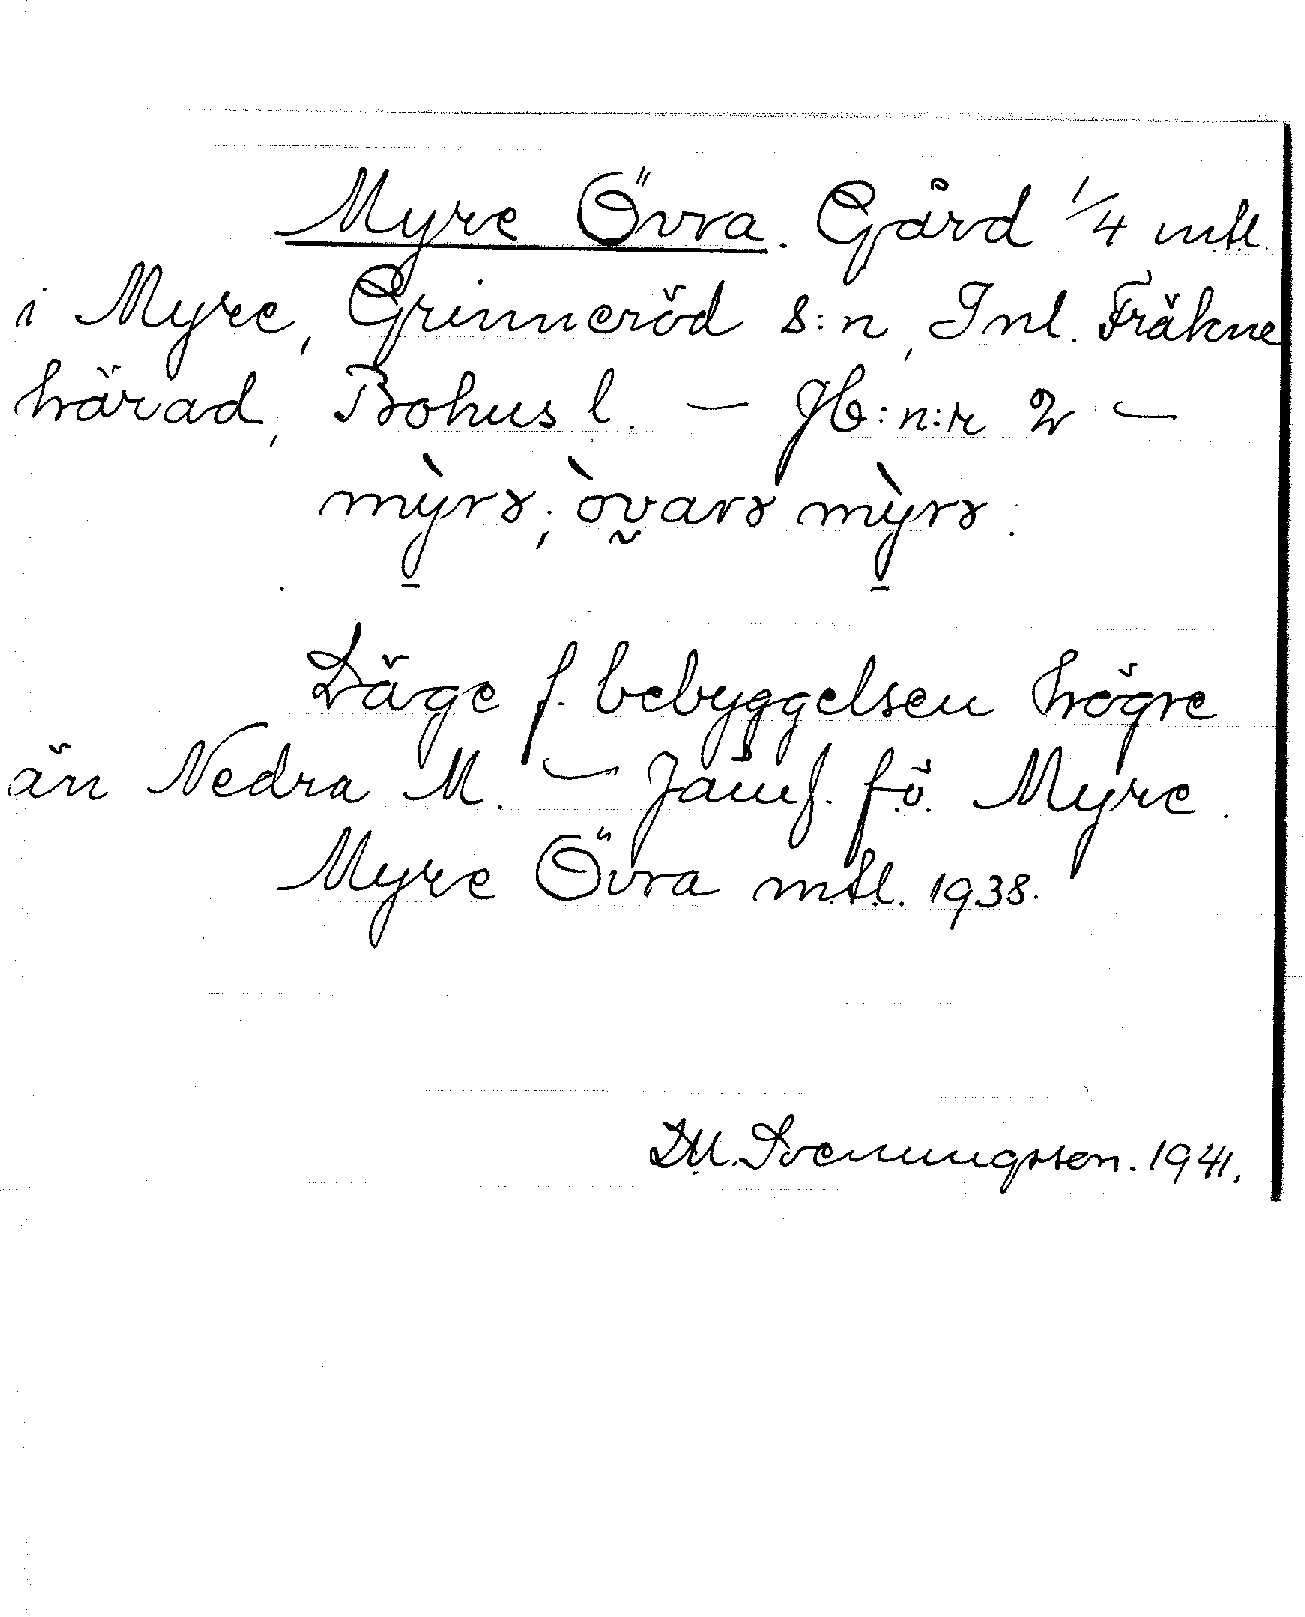 Myre Övra. Gård 1/4 mtl.
i Myre, Grinneröd s:n, Inl. Fräkne
härad, Bohus l. — Jb:n:r 2 —
mỳrə; òvarə mỳrə.
Läge f. bebyggelsen högre
än Nedra M. — Jämf. fö. Myre.
Myre Övra mtl. 1938.
D.M. Svenningsson. 1941.